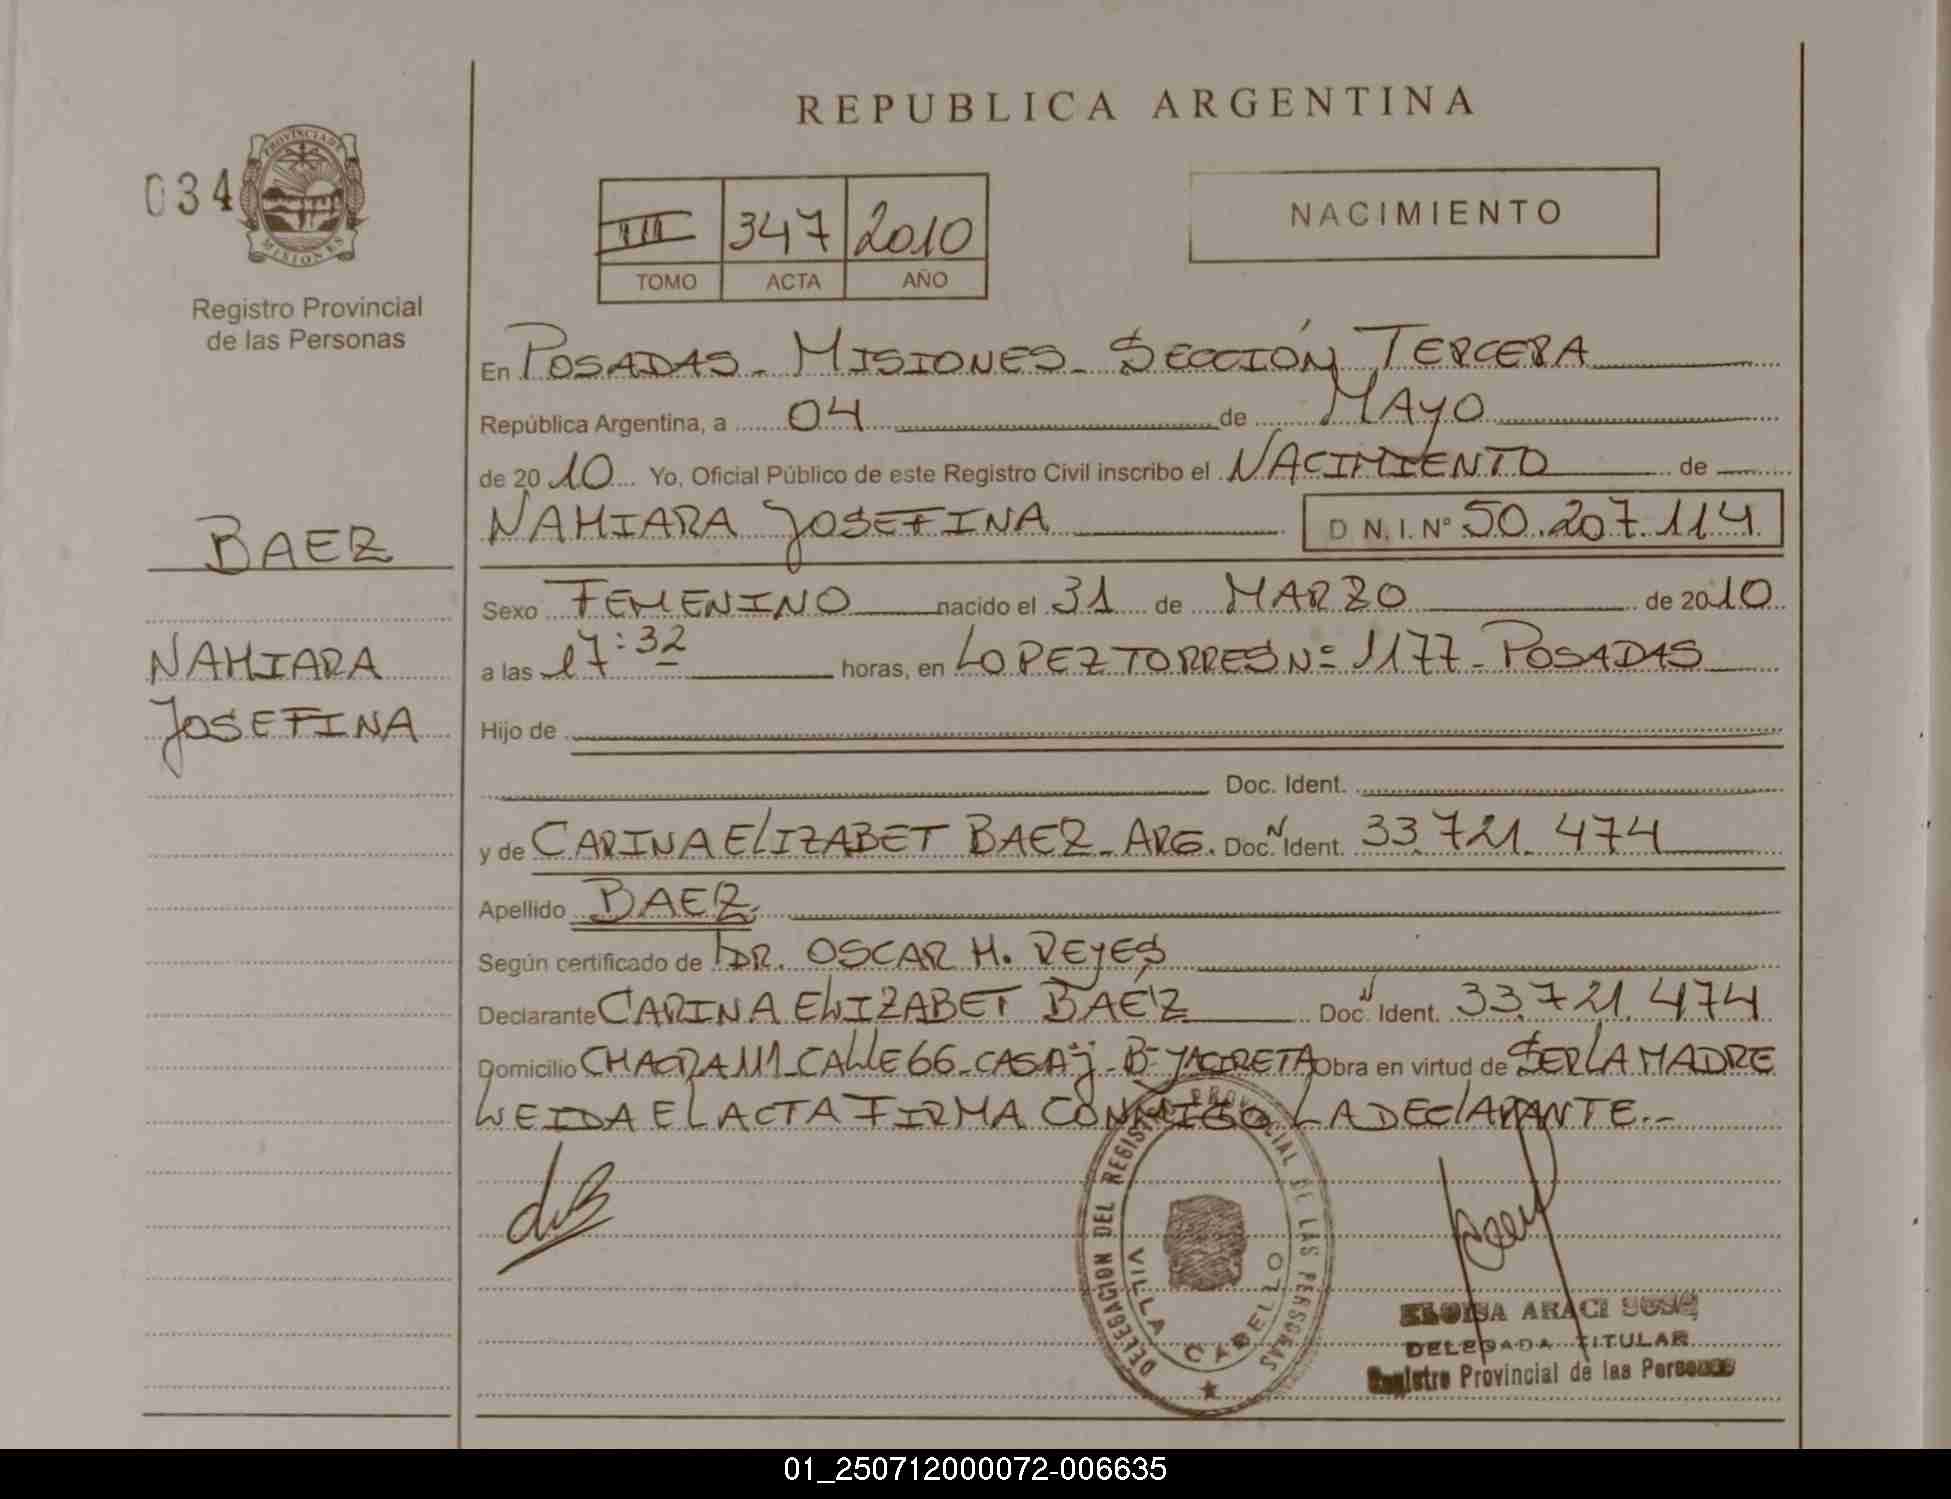 REPUBLICA ARGENTINA
034
PROVINCIA DE MISIONES
Registro Provincial
de las Personas
III 347 2010
TOMO ACTA AÑO
NACIMIENTO
En POSADAS - MISIONES - SECCIÓN TERCERA
República Argentina, a 04 de MAYO
de 2010 Yo, Oficial Público de este Registro Civil inscribo el NACIMIENTO de
NAHIARA JOSEFINA D N.I. Nº 50.207.114
BAEZ
NAHIARA
JOSEFINA
Sexo FEMENINO nacido el 31 de MARZO de 2010
a las 17:32 horas, en LOPEZ TORRES Nº 1177 - POSADAS
Hijo de
Doc. Ident.
y de CARINA ELIZABET BAEZ - ARG. Doc. N Ident. 33.721.474
Apellido BAEZ
Según certificado de DR. OSCAR H. REYES
Declarante CARINA ELIZABET BAEZ Doc. N Ident. 33.721.474
Domicilio CHACRA 111 - CALLE 66 - CASA "J" - Bº YACIRETA Obra en virtud de SER LA MADRE
LEIDA EL ACTA FIRMA CONMIGO LA DECLARANTE.-
DELEGACION DEL REGISTRO PROVINCIAL DE LAS PERSONAS
VILLA CABELLO
ELOISA ARACI
DELEGADA TITULAR
Registro Provincial de las Personas
01_250712000072-006635